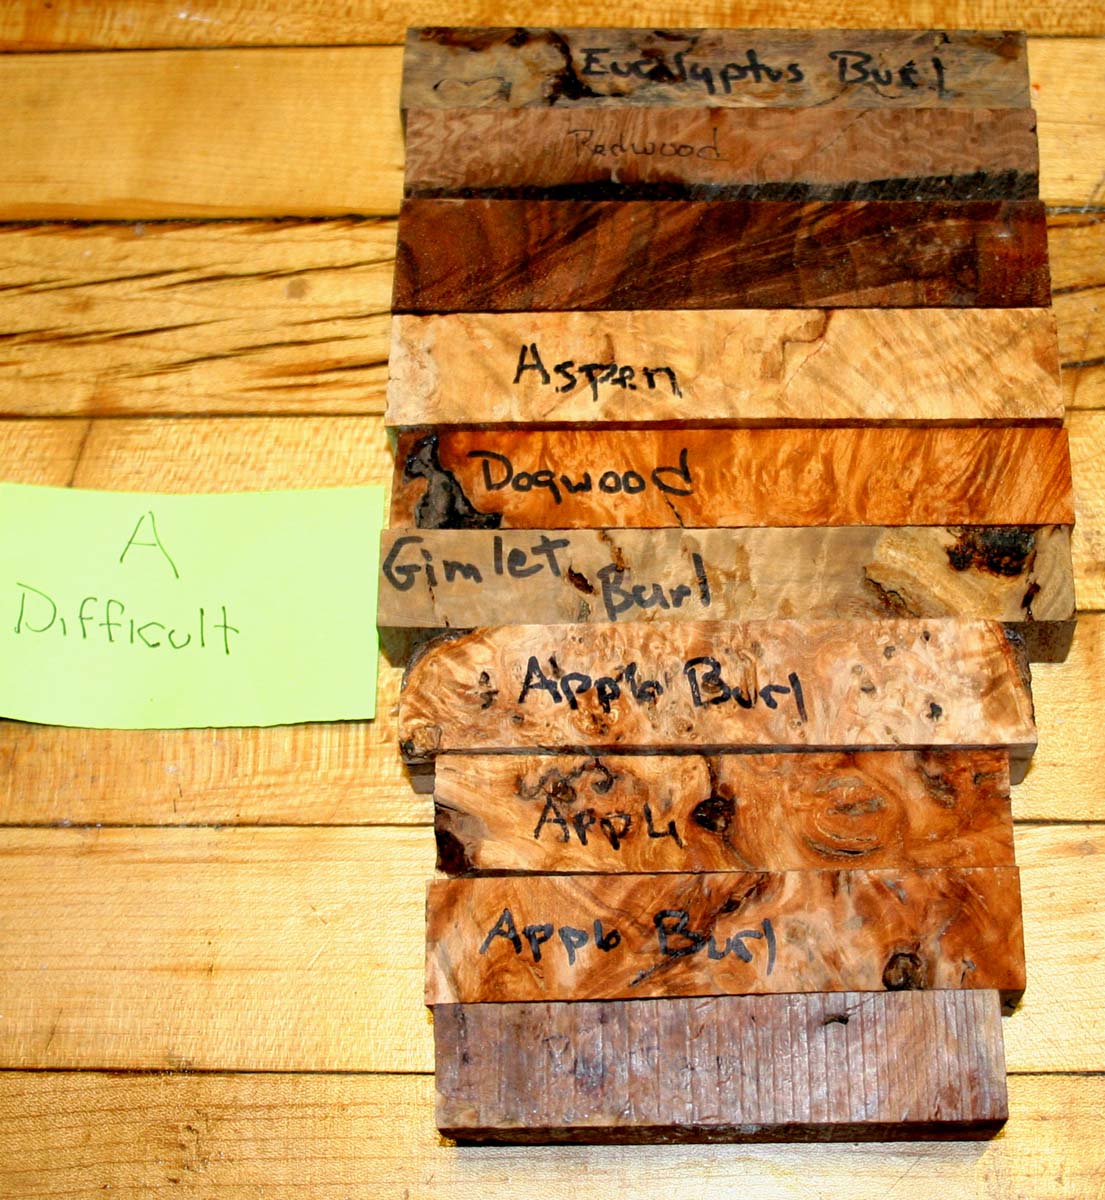 Eucalyptus Burl
Redwood
Aspen
Dogwood
Gimlet Burl
A
Difficult
Apple Burl
Apple
Apple Burl